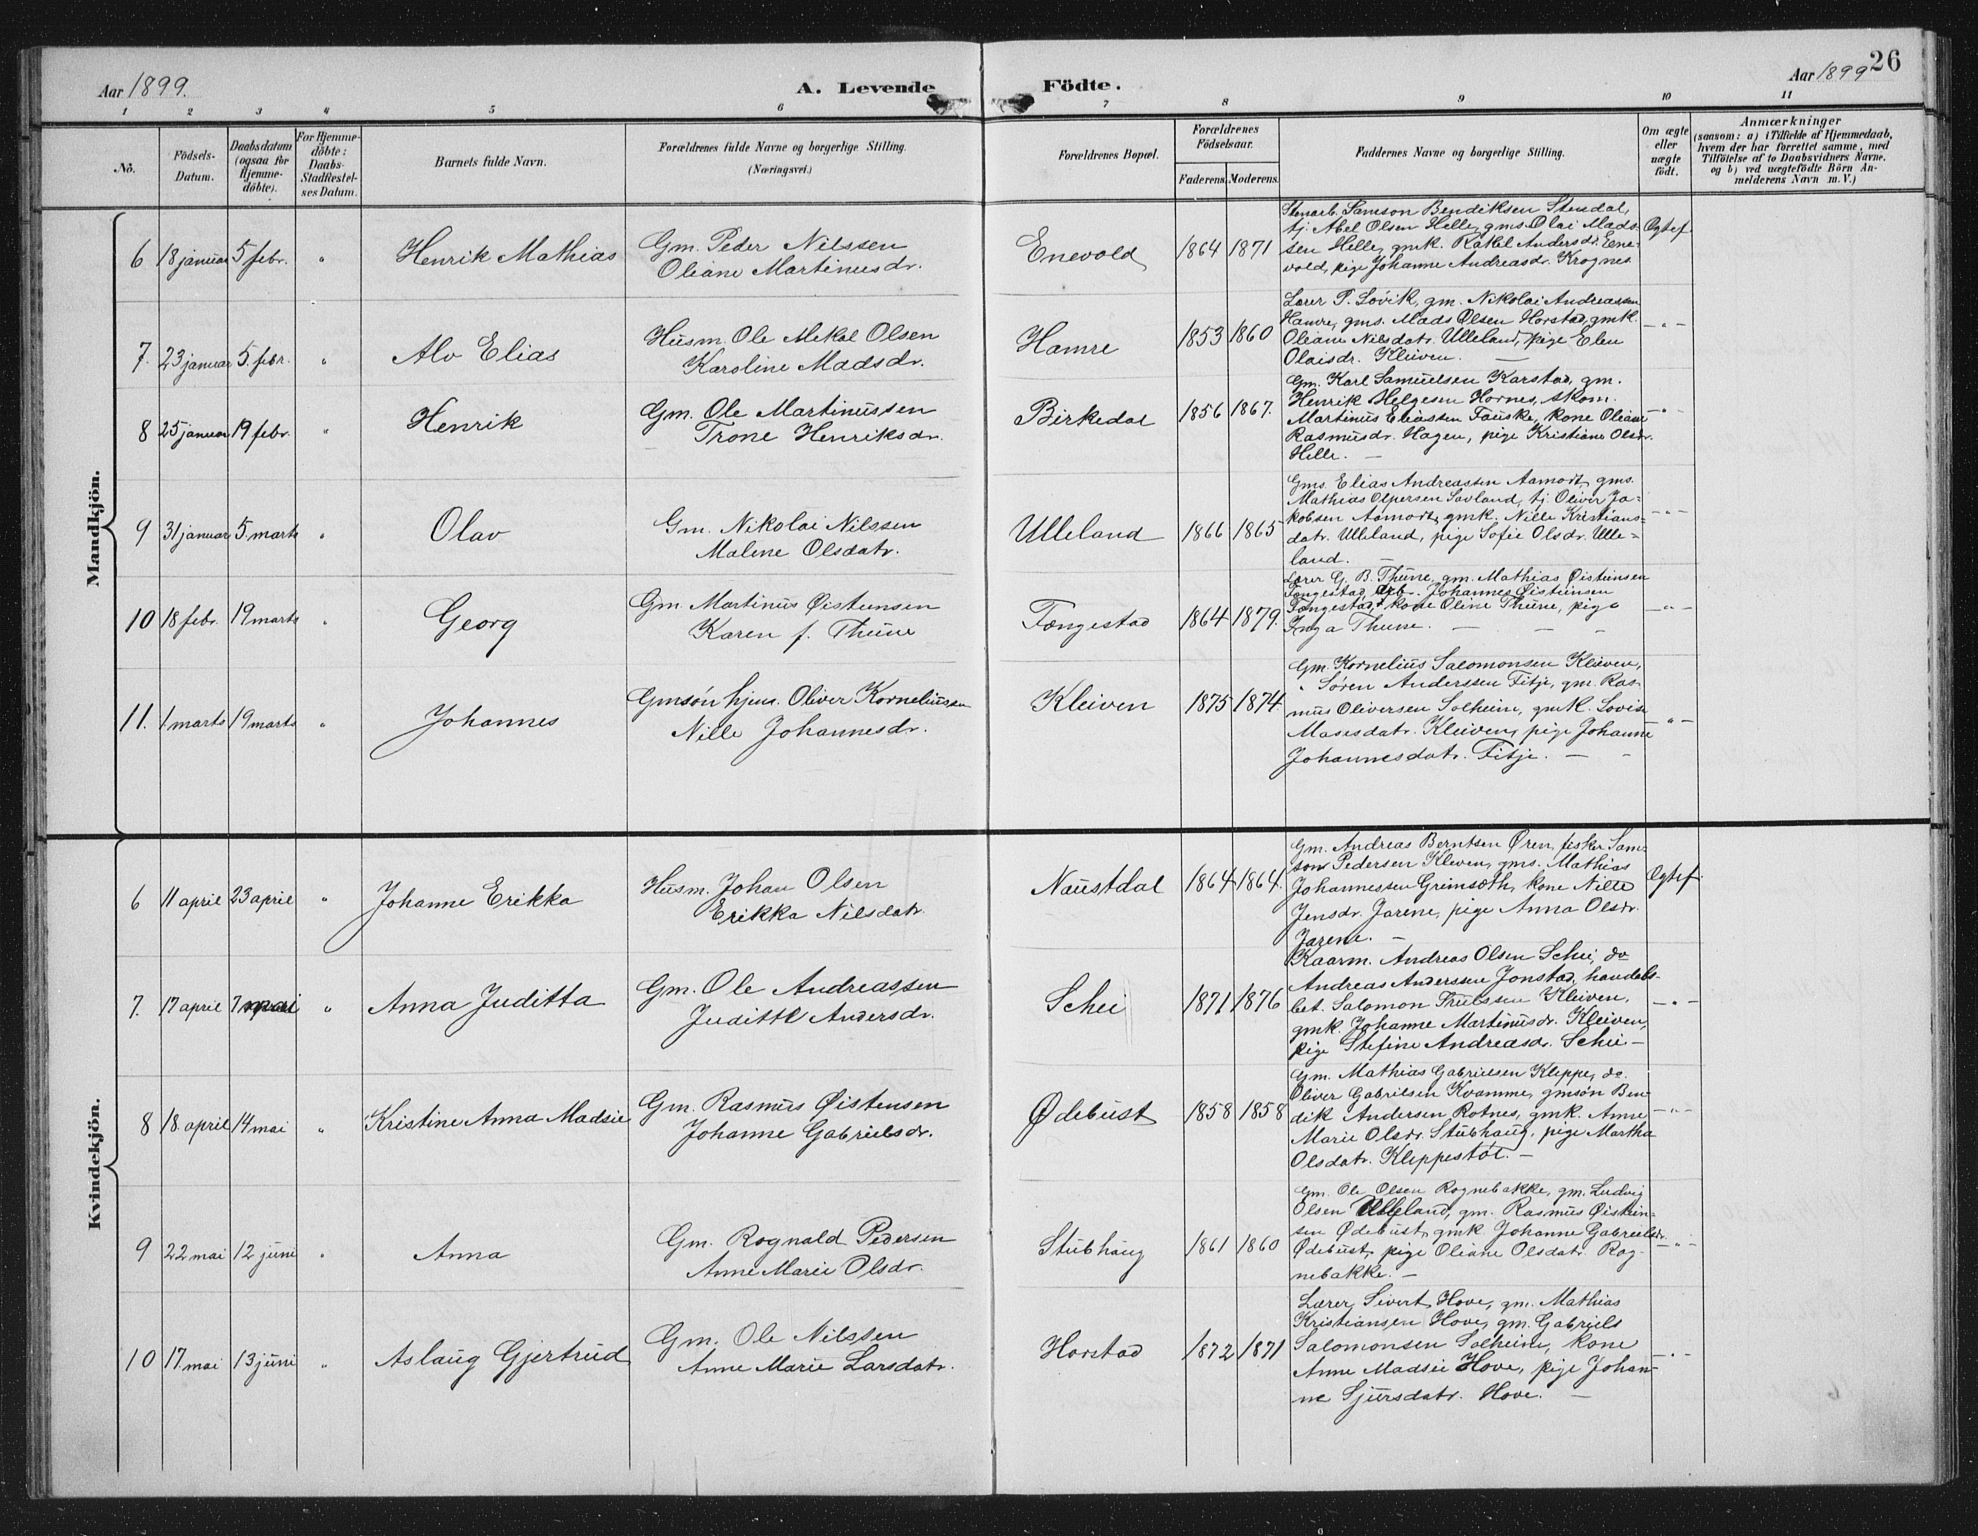 Aar 1899.
A. Levende
Födte.
Aar 1899
26
1 2 3 4 5 6 7 8 9 10 11
No.
Födsels-
Datum.
Daabsdatum
(ogsaa for
Hjemme-
döbte).
For Hjemme-
döbte:
Daabs-
Stadfæstel-
ses Datum.
Barnets fulde Navn.
Forældrenes fulde Navne og borgerlige Stilling.
(Næringsvei.)
Forældrenes Bopæl.
Forældrenes
Födselsaar.
Faderens. Moderens.
Faddernes Navne og borgerlige Stilling.
Om ægte
eller
uægte
födt.
Anmærkninger
(saasom: a) i Tilfælde af Hjemmedaab,
hvem der har forrettet samme, med
Tilföielse af to Daabsvidners Navne.
og b) ved uægtefödte Börn An-
melderens Navn m. V.)
Mandkjön.
6 18 januar 5 febr. " Henrik Mathias
Gm. Peder Nilssen
Oliane Martinusdr.
Enevold 1864 1871
Stenarb. Samson Bendiksen Stendal,
tj. Abel Olsen Helle, gms. Olai Mads-
sen Helle, gmk. Rakel Andersdr. Ene-
vold, pige Johanne Andreasdr. Krognes
Egtef.
7. 23 januar 5 febr. " Alv Elias
Husm. Ole Mikal Olsen
Karoline Madsdr.
Hamre 1853 1860
Lærer P. Lövik, gm. Nikolai Andreassen
Hamre, gms. Mads Olsen Horstad, gmk.
Oliane Nilsdatr. Ulleland, pige Elen
Olaisdr. Kleiven. —
— " —
8 25 januar 19 febr. " Henrik
Gm. Ole Martinussen
Trone Henriksdr.
Birkedal 1856 1867.
Gm. Karl Samuelsen Karstad, gm.
Henrik Helgesen Hornes, skom.
Martinus Eliassen Fauske, kone Oliane
Rasmusdr. Hagen, pige Kristiane Olsdr.
Helle. —
— " —
9 31 januar 5 marts " Olav
Gm. Nikolai Nilssen
Malene Olsdatr.
Ulleland 1866 1865
Gms. Elias Andreassen Aamodt, gms.
Mathias Savland, tj. Oliver Ja-
kobsen Aamodt, gmk. Nille Kristians-
datr. Ulleland, pige Sofie Olsdr. Ulle-
land. —
— " —
10 18 febr. 19 marts " Georg
Gm. Martinus Øistensen
Karen f. Thune
Tængestad 1864 1879.
Lærer G. B. Thune, gm. Mathias Øistensen
Tængestad, arb. Johannes Øistensen
Tængestad, kone Oline Thune, pige
Inga Thune. — — —
— " —
11. 1 marts 19 marts " Johannes
Gmsøn hjem. Oliver Korneliussen
Nille Johannesdr.
Kleiven 1875 1874.
Gm. Kornelius Salomonsen Kleiven,
" Søren Anderssen Fitje, gm. Ras-
mus Oliversen Solheim, gmk. Lovise
Masesdatr. Kleiven, pige Johanne
Johannesdatr. Fitje. — —
— " —
Kvindekjön.
6 11 april 23 april " Johanne Erikka
Husm. Johan Olsen
Erikka Nilsdatr.
Naustdal 1864 1864.
Gm. Andreas Berntsen Øren, fisker Sam-
son Pedersen Kleven, gms. Mathias
Johannessen Grimsæth, kone Nille
Jensdr. Jarene, pige Anna Olsdr.
Jarene. —
Egtef.
7. 17 april 7 mai " Anna Juditta
Gm. Ole Andreassen
Juditte Andersdr.
Schei 1871 1876
Kaarm. Andreas Olsen Schei, do
Andreas Anderssen Jonstad, handels-
bet. Salomon Trulssen Kleiven,
gmk. Johanne Martinusdr. Kleiven,
pige Stefine Andreasdr. Schei —
— " —
8 18. april 14 mai " Kristine Anna Madsie
Gm. Rasmus Øistensen
Johanne Gabrielsdr.
Ødebust 1858 1858
Gm. Mathias Gabrielsen Kleppe, do.
Oliver Gabrielsen Kvamme, gmsøn Ben-
dik Andersen Rotnes, gmk. Anne
Marie Olsdr. Stubhaug, pige Martha
Olsdatr. Kleppestøl. —
— " —
9 22 mai 12 juni " Anna
Gm. Rognald Pedersen
Anne Marie Olsdr.
Stubhaug 1861 1860
Gm. Ole Olsen Rognebakke, gm. Ludvig
Olsen Ulleland, gm. Rasmus Øisten-
sen Ødebust, gmk. Johanne Gabrielsdr.
Ødebust, pige Oliane Olsdatr. Rog-
nebakke. —
— " —
10 17 mai 13 juni " Aslaug Gjertrud
Gm. Ole Nilssen
Anne Marie Larsdatr.
Horstad 1872 1871
Lærer Sivert Hove, gm. Mathias
Kristiansen Hove, gm. Gabriels
Salomonsen Solheim, kone
Anne Madsie Hove, pige Johan-
ne Sjursdatr. Hove. —
— " —